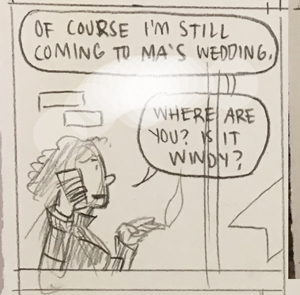 OF COURSE I'M STILL
COMING TO MA'S WEDDING.
WHERE ARE
YOU? IS IT
WINDY?